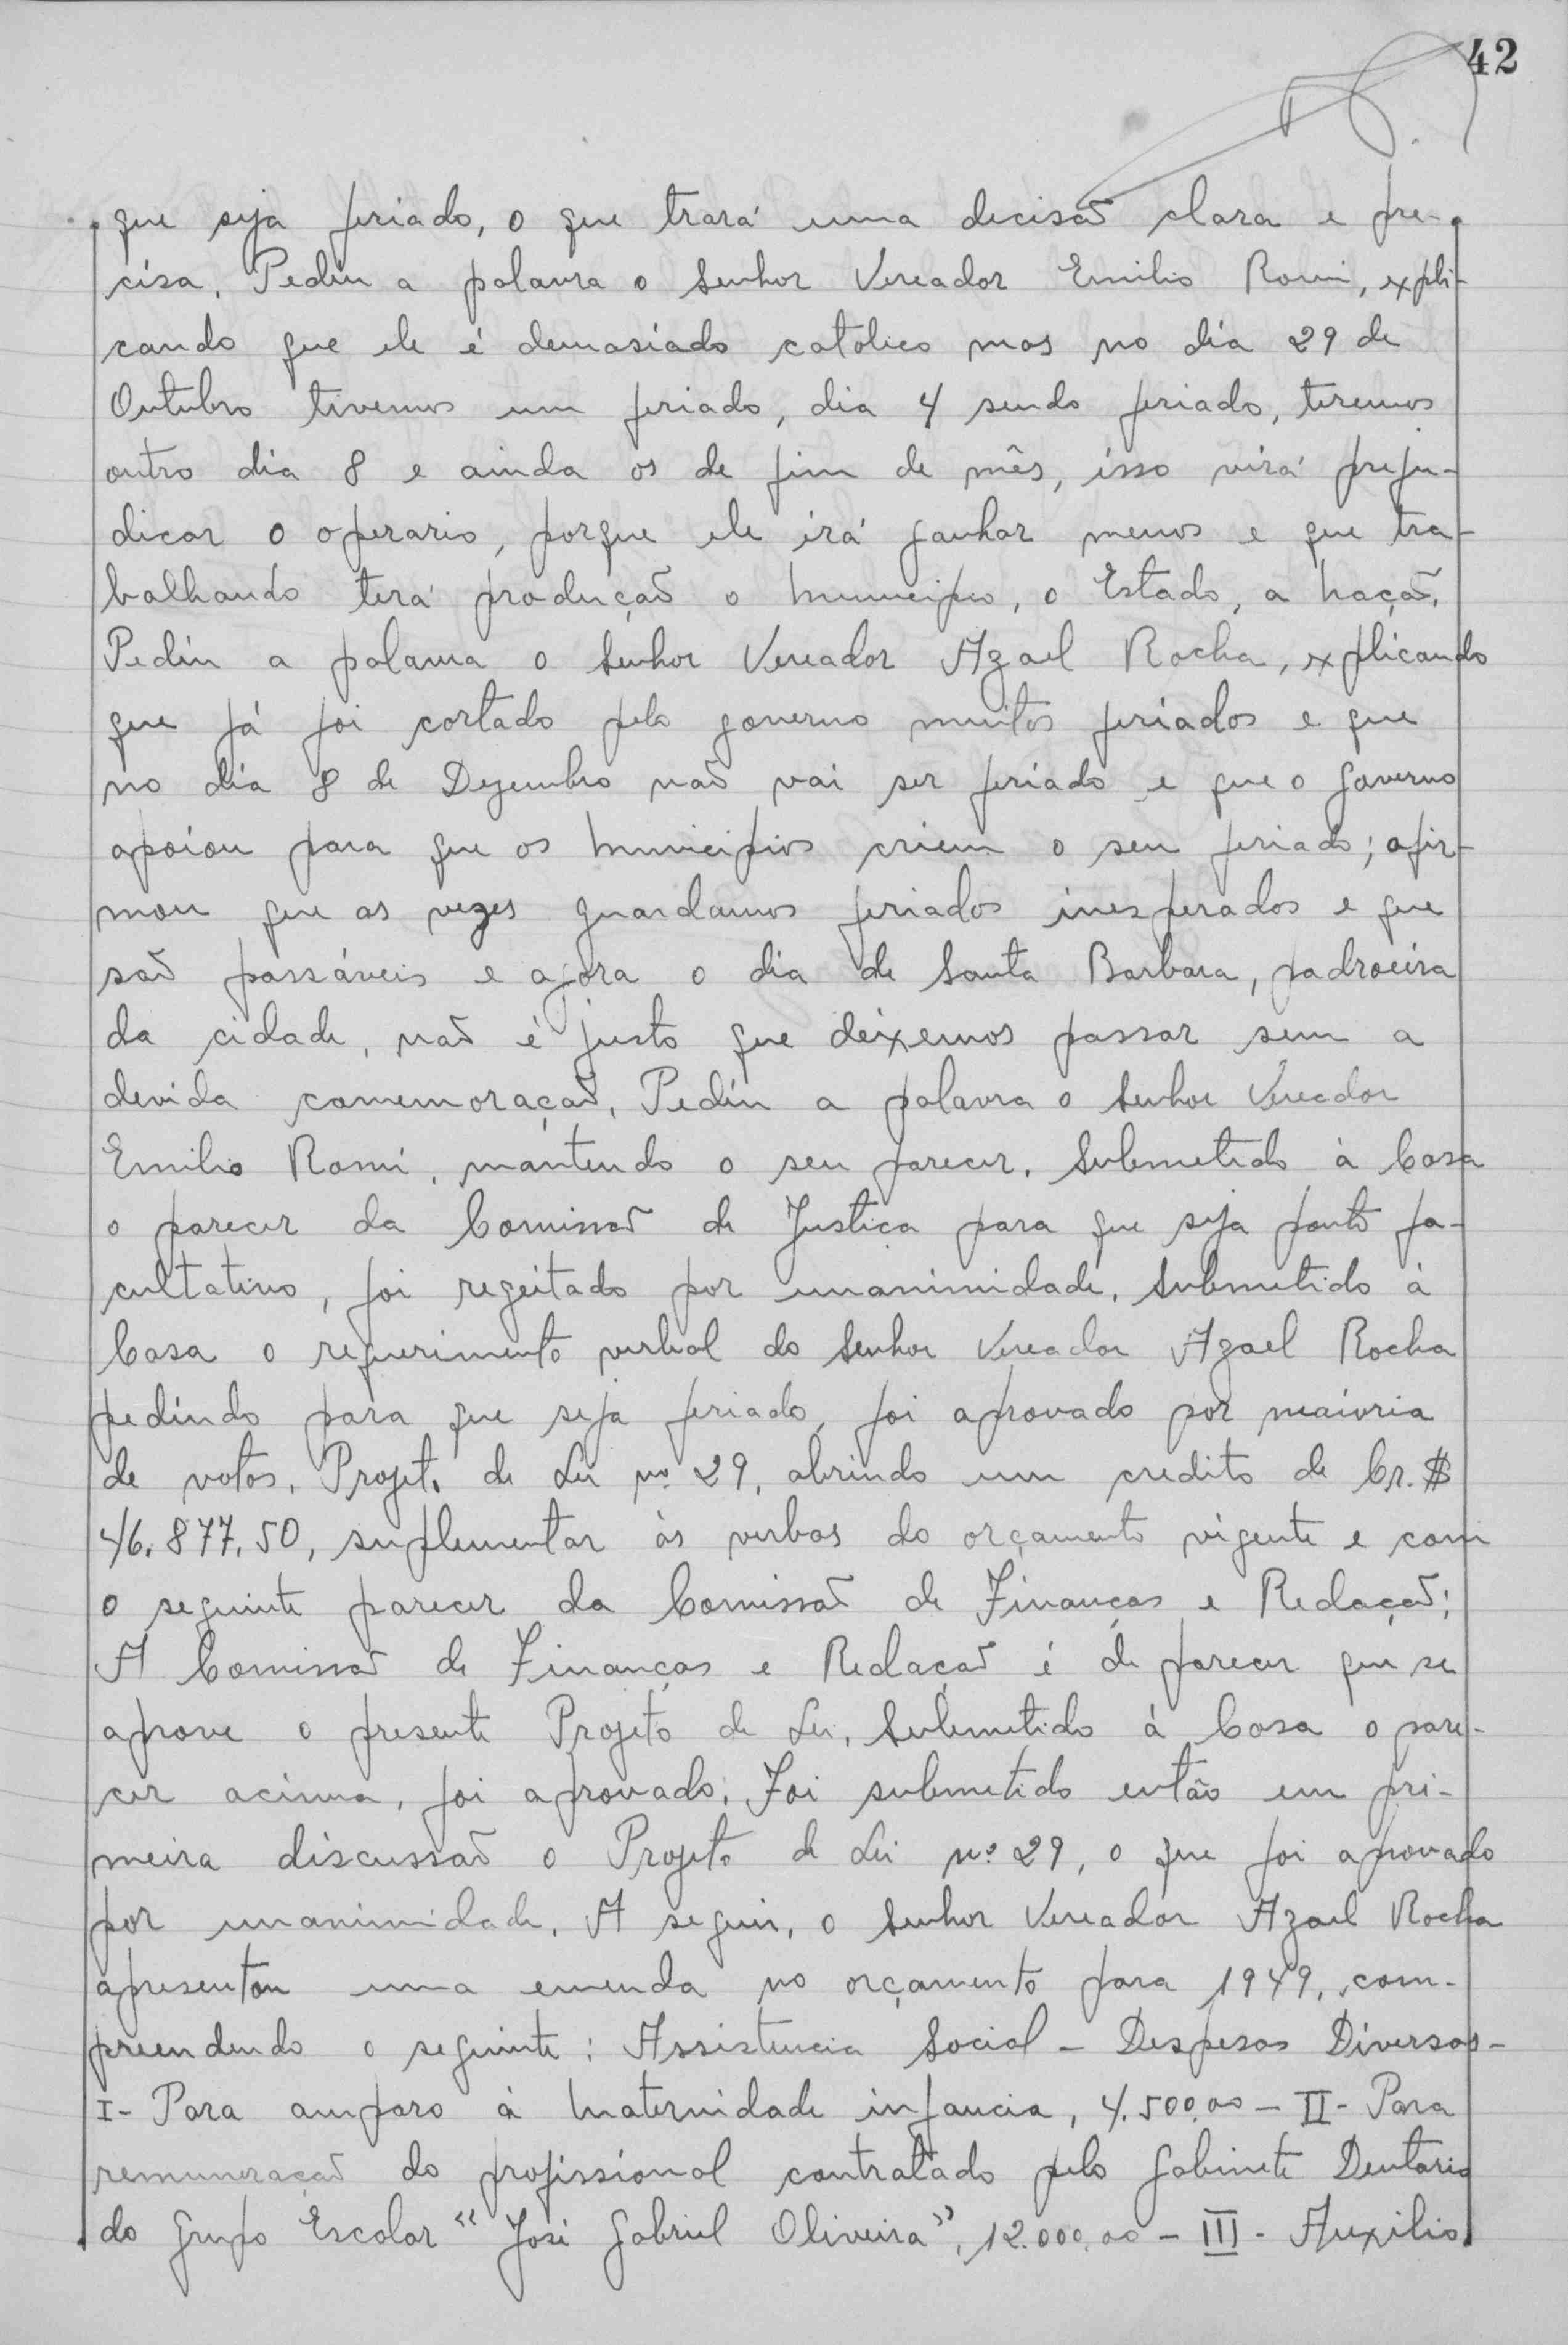 42
que seja feriado, o que trará uma decisão clara e pre-
cisa. Pediu a palavra o Senhor Vereador Emilio Romi, expli-
cando que ele é demasiado catolico mas no dia 29 de
Outubro tivemos um feriado, dia 4 sendo feriado, teremos
outro dia 8 e ainda os de fim de mês, isso virá preju-
dicar o operario, porque ele irá ganhar menos e que tra-
balhando terá produção o Municipio, o Estado, a Nação.
Pediu a palavra o Senhor Vereador Azael Rocha, explicando
que já foi cortado pelo governo muitos feriados e que
no dia 8 de Dezembro não vai ser feriado e que o Governo
apoiou para que os Municipios criem o seu feriado; afir-
mou que as vezes guardamos feriados inesperados e que
são passáveis e agora o dia de Santa Barbara, padroeira
da cidade, não é justo que deixemos passar sem a
devida comemoração. Pediu a palavra o Senhor Vereador
Emilio Romi, mantendo o seu parecer. Submetido à Casa
o parecer da Comissão de Justiça para que seja ponto fa-
cultativo, foi regeitado por unanimidade. Submetido à
Casa o requerimento verbal do Senhor Vereador Azael Rocha
pedindo para que seja feriado, foi aprovado por maioria
de votos. Projeto de Lei nº 29, abrindo um credito de Cr.$
46.877,50, suplementar às verbas do orçamento vigente e com
o seguinte parecer da Comissão de Finanças e Redação:
A Comissão de Finanças e Redação é de parecer que se
aprove o presente Projeto de Lei. Submetido á Casa o pare-
cer acima, foi aprovado. Foi submetido então em pri-
meira discussão o Projeto de Lei nº 29, o que foi aprovado
por unanimidade. A seguir, o Senhor Vereador Azael Rocha
apresentou uma emenda no orçamento para 1949, com-
preendendo o seguinte: Assistencia Social - Despesas Diversas -
I - Para amparo à Maternidade infancia, 4.500,00 - II - Para
remuneração do profissional contratado pelo Gabinete Dentario
do Grupo Escolar "José Gabriel Oliveira", 12.000,00 - III - Auxilio